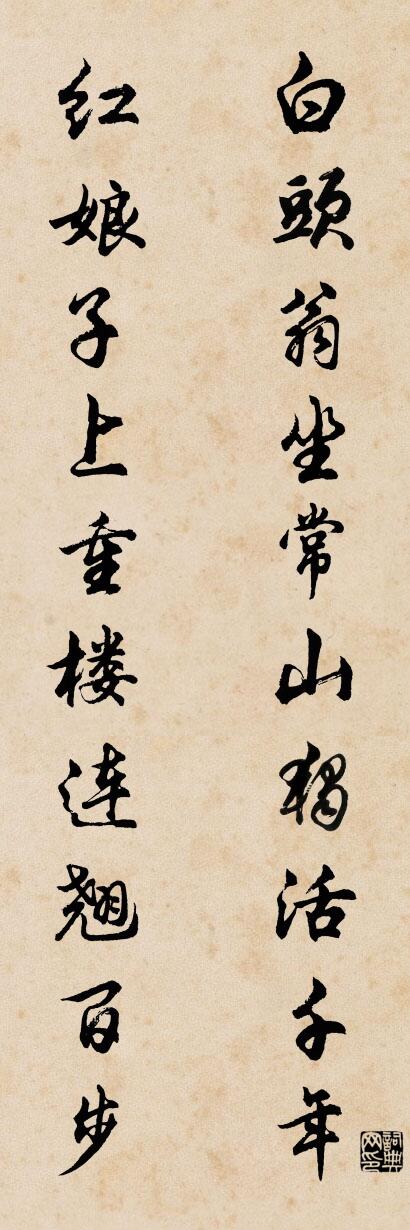 白頭翁坐常山獨活千年
红娘子上重楼連翘百步
詞典网印